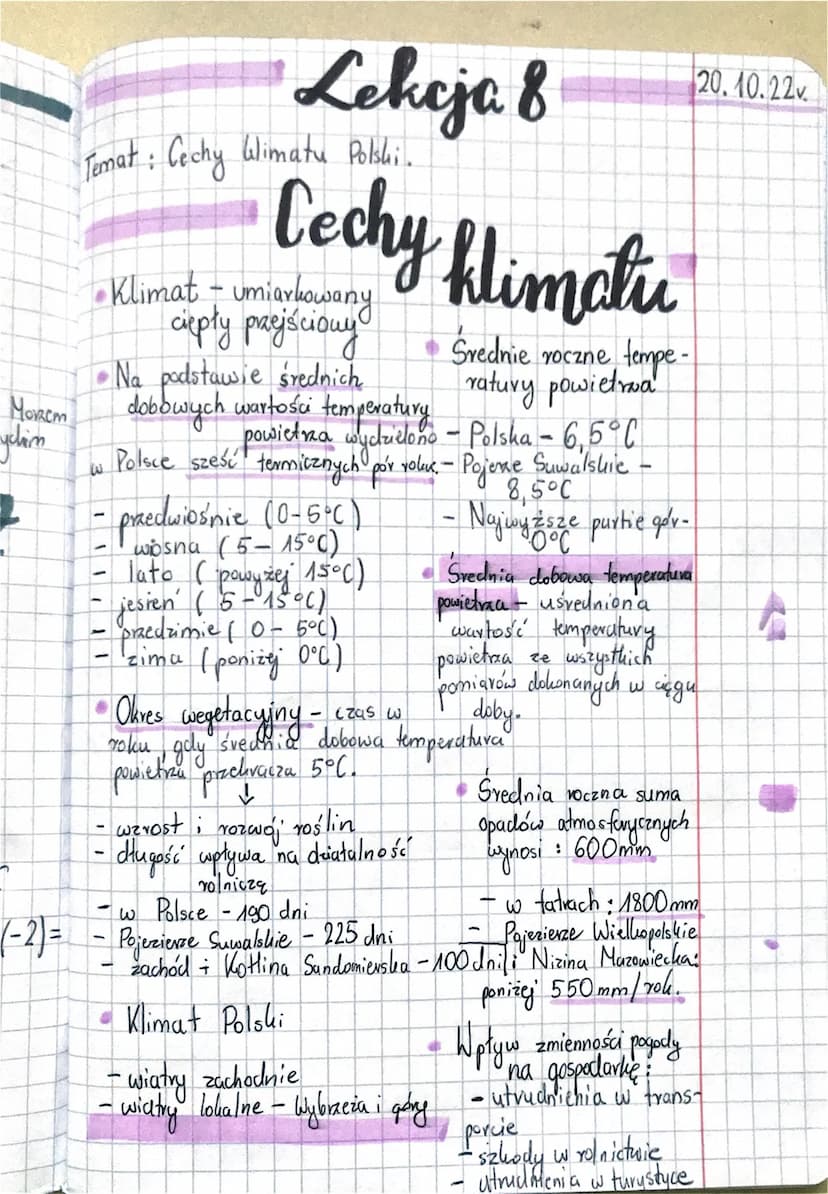 Lekcja 8
20.10.22r.
Temat : Cechy klimatu Polski.
Cechy klimatu
• Klimat – umiarkowany
ciepły przejściowy
• Na podstawie średnich
dobowych wartości temperatury
powietrza wydzielono
w Polsce sześć termicznych pór roku.
- przedwiośnie (0-5°C)
- wiosna (5– 15°C)
- lato ( powyżej 15°C)
- jesień ( 5 – 15°C)
- przedzimie ( 0 – 5°C)
- zima (poniżej 0°C)
• Okres wegetacyjny – czas w
roku, gdy średnia dobowa temperatura
powietrza przekracza 5°C.
↓
- wzrost i rozwój roślin
- długość wpływa na działalność
rolniczą
- w Polsce - 190 dni
- Pojezierze Suwalskie - 225 dni
- zachód i Kotlina Sandomierska - 100 dni
• Klimat Polski
- wiatry zachodnie
- wiatry lokalne – Wybrzeża i góry
• Średnie roczne tempe-
ratury powietrza
- Polska - 6,5°C
- Pojezie Suwalskie -
8,5°C
- Najwyższe partie gór-
0°C
• Średnia dobowa temperatura
powietrza – uśredniona
wartość temperatury
powietrza ze wszystkich
pomiarów dokonanych w ciągu
doby.
• Średnia roczna suma
opadów atmosferycznych
wynosi : 600mm
- w tatrach : 1800mm
- Pojezierze Wielkopolskie
i Nizina Mazowiecka:
poniżej 550mm/rok.
• Wpływ zmienności pogody
na gospodarkę:
- utrudnienia w trans-
porcie
- szkody w rolnictwie
- utrudnienia w turystyce
Morzem
(-2)=